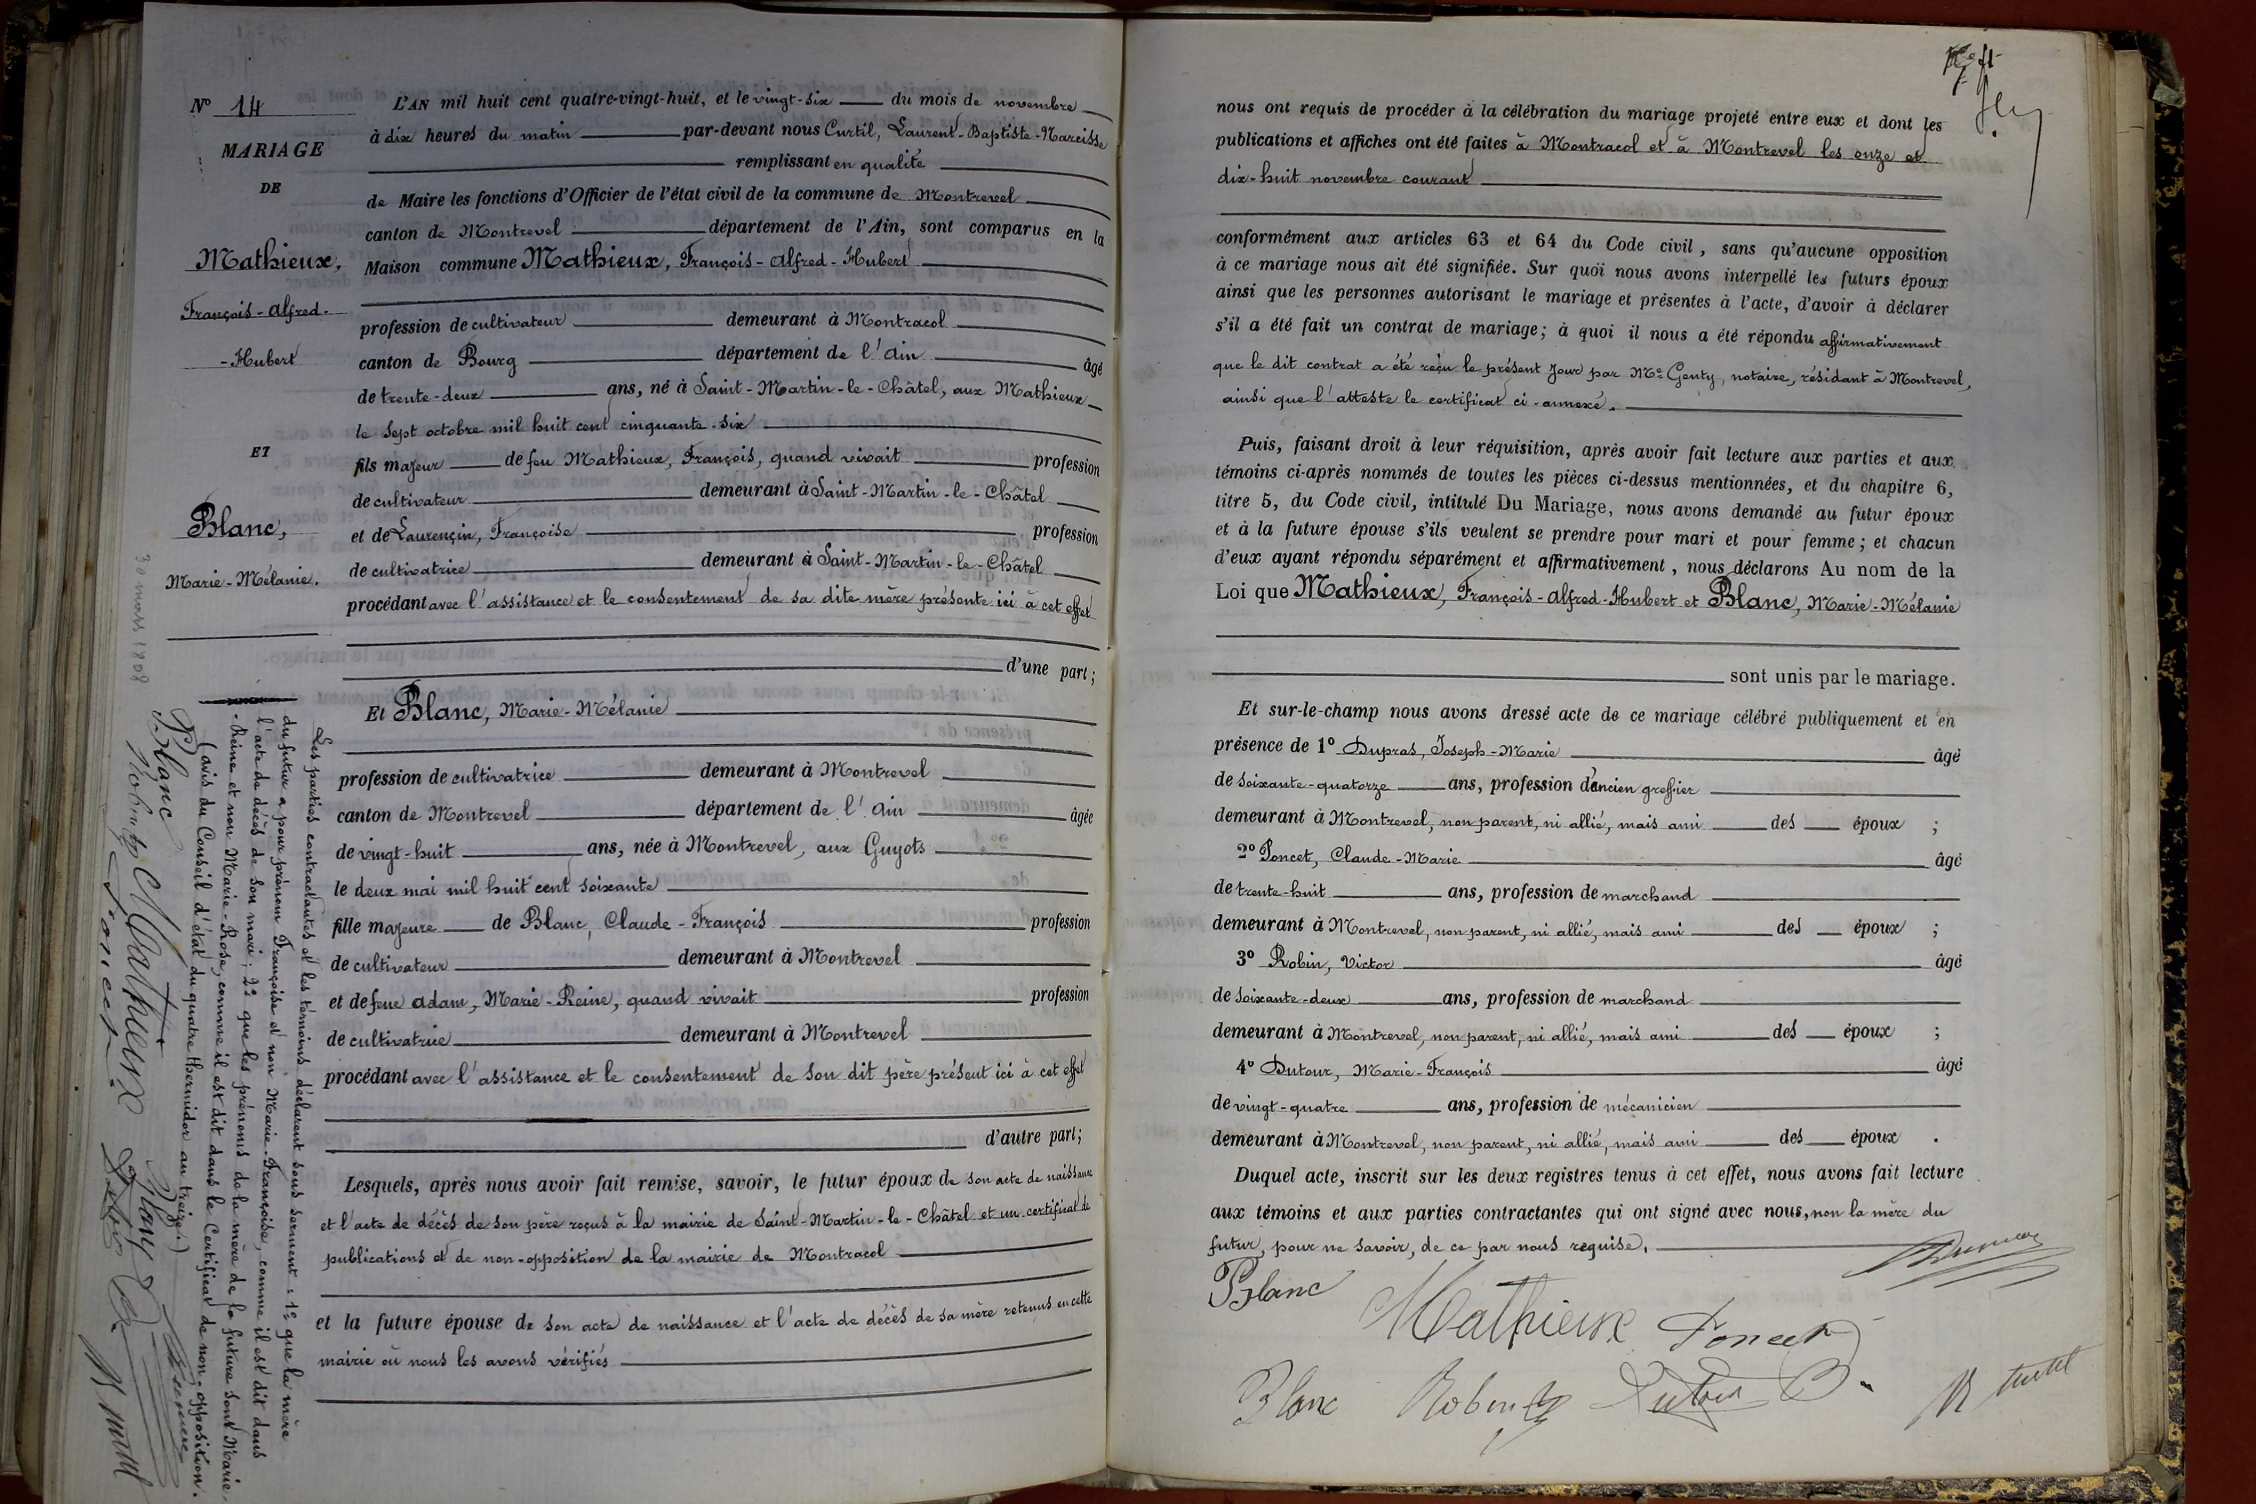 Nº 14
MARIAGE
DE
Mathieux,
François-Alfred-
-Hubert
ET
Blanc,
Marie-Mélanie.
30 mars 1908
L'AN mil huit cent quatre-vingt-huit, et le vingt-six du mois de novembre
à dix heures du matin par-devant nous Curtil, Laurent-Baptiste-Narcisse
remplissant en qualité
de Maire les fonctions d'Officier de l'état civil de la commune de Montrevel
canton de Montrevel département de l'Ain, sont comparus en la
Maison commune Mathieux, François-Alfred-Hubert
profession de cultivateur demeurant à Montracol
canton de Bourg département de l'Ain âgé
de trente-deux ans, né à Saint-Martin-le-Châtel, aux Mathieux
le sept octobre mil huit cent cinquante-six
fils majeur de feu Mathieux, François, quand vivait profession
de cultivateur demeurant à Saint-Martin-le-Châtel
et de Laurençin, Françoise profession
de cultivatrice demeurant à Saint-Martin-le-Châtel
procédant avec l'assistance et le consentement de sa dite mère présente ici à cet effet
d'une part;
Et Blanc, Marie-Mélanie
profession de cultivatrice demeurant à Montrevel
canton de Montrevel département de l'Ain âgée
de vingt-huit ans, née à Montrevel, aux Guyots
le deux mai mil huit cent soixante
fille majeure de Blanc, Claude-François profession
de cultivateur demeurant à Montrevel
et de feue Adam, Marie-Reine, quand vivait profession
de cultivatrice demeurant à Montrevel
procédant avec l'assistance et le consentement de son dit père présent ici à cet effet
d'autre part;
Lesquels, après nous avoir fait remise, savoir, le futur époux de son acte de naissance
et l'acte de décès de son père reçus à la mairie de Saint-Martin-le-Châtel et un certificat de
publications et de non-opposition de la mairie de Montracol
et la future épouse de son acte de naissance et l'acte de décès de sa mère retenus en cette
mairie où nous les avons vérifiés
Les parties contractantes et les témoins déclarent sous serment : 1º que la mère
du futur a pour prénom Françoise et non Marie-Françoise, comme il est dit dans
l'acte de décès de son mari ; 2º que les prénoms de la mère de la future sont Marie-
-Reine et non Marie-Rose, comme il est dit dans le Certificat de non-opposition.
(avis du Conseil d'état du quatre thermidor an treize.)
Blanc Mathieux Blanc
Robin Poncet Dutour
nous ont requis de procéder à la célébration du mariage projeté entre eux et dont les
publications et affiches ont été faites à Montracol et à Montrevel les onze et
dix-huit novembre courant
conformément aux articles 63 et 64 du Code civil, sans qu'aucune opposition
à ce mariage nous ait été signifiée. Sur quoi nous avons interpellé les futurs époux
ainsi que les personnes autorisant le mariage et présentes à l'acte, d'avoir à déclarer
s'il a été fait un contrat de mariage; à quoi il nous a été répondu affirmativement
que le dit contrat a été reçu le présent jour par Me Genty, notaire, résidant à Montrevel,
ainsi que l'atteste le certificat ci-annexé.
Puis, faisant droit à leur réquisition, après avoir fait lecture aux parties et aux
témoins ci-après nommés de toutes les pièces ci-dessus mentionnées, et du chapitre 6,
titre 5, du Code civil, intitulé Du Mariage, nous avons demandé au futur époux
et à la future épouse s'ils veulent se prendre pour mari et pour femme; et chacun
d'eux ayant répondu séparément et affirmativement, nous déclarons Au nom de la
Loi que Mathieux, François-Alfred-Hubert et Blanc, Marie-Mélanie
sont unis par le mariage.
Et sur-le-champ nous avons dressé acte de ce mariage célébré publiquement et en
présence de 1º Dupras, Joseph-Marie âgé
de soixante-quatorze ans, profession d'ancien greffier
demeurant à Montrevel, non parent, ni allié, mais ami des époux ;
2º Poncet, Claude-Marie âgé
de trente-huit ans, profession de marchand
demeurant à Montrevel, non parent, ni allié, mais ami des époux ;
3º Robin, Victor âgé
de soixante-deux ans, profession de marchand
demeurant à Montrevel, non parent, ni allié, mais ami des époux ;
4º Dutour, Marie-François âgé
de vingt-quatre ans, profession de mécanicien
demeurant à Montrevel, non parent, ni allié, mais ami des époux .
Duquel acte, inscrit sur les deux registres tenus à cet effet, nous avons fait lecture
aux témoins et aux parties contractantes qui ont signé avec nous, non la mère du
futur, pour ne savoir, de ce par nous requise.
Blanc Mathieux Poncet
Blanc Robin Dutour Curtil